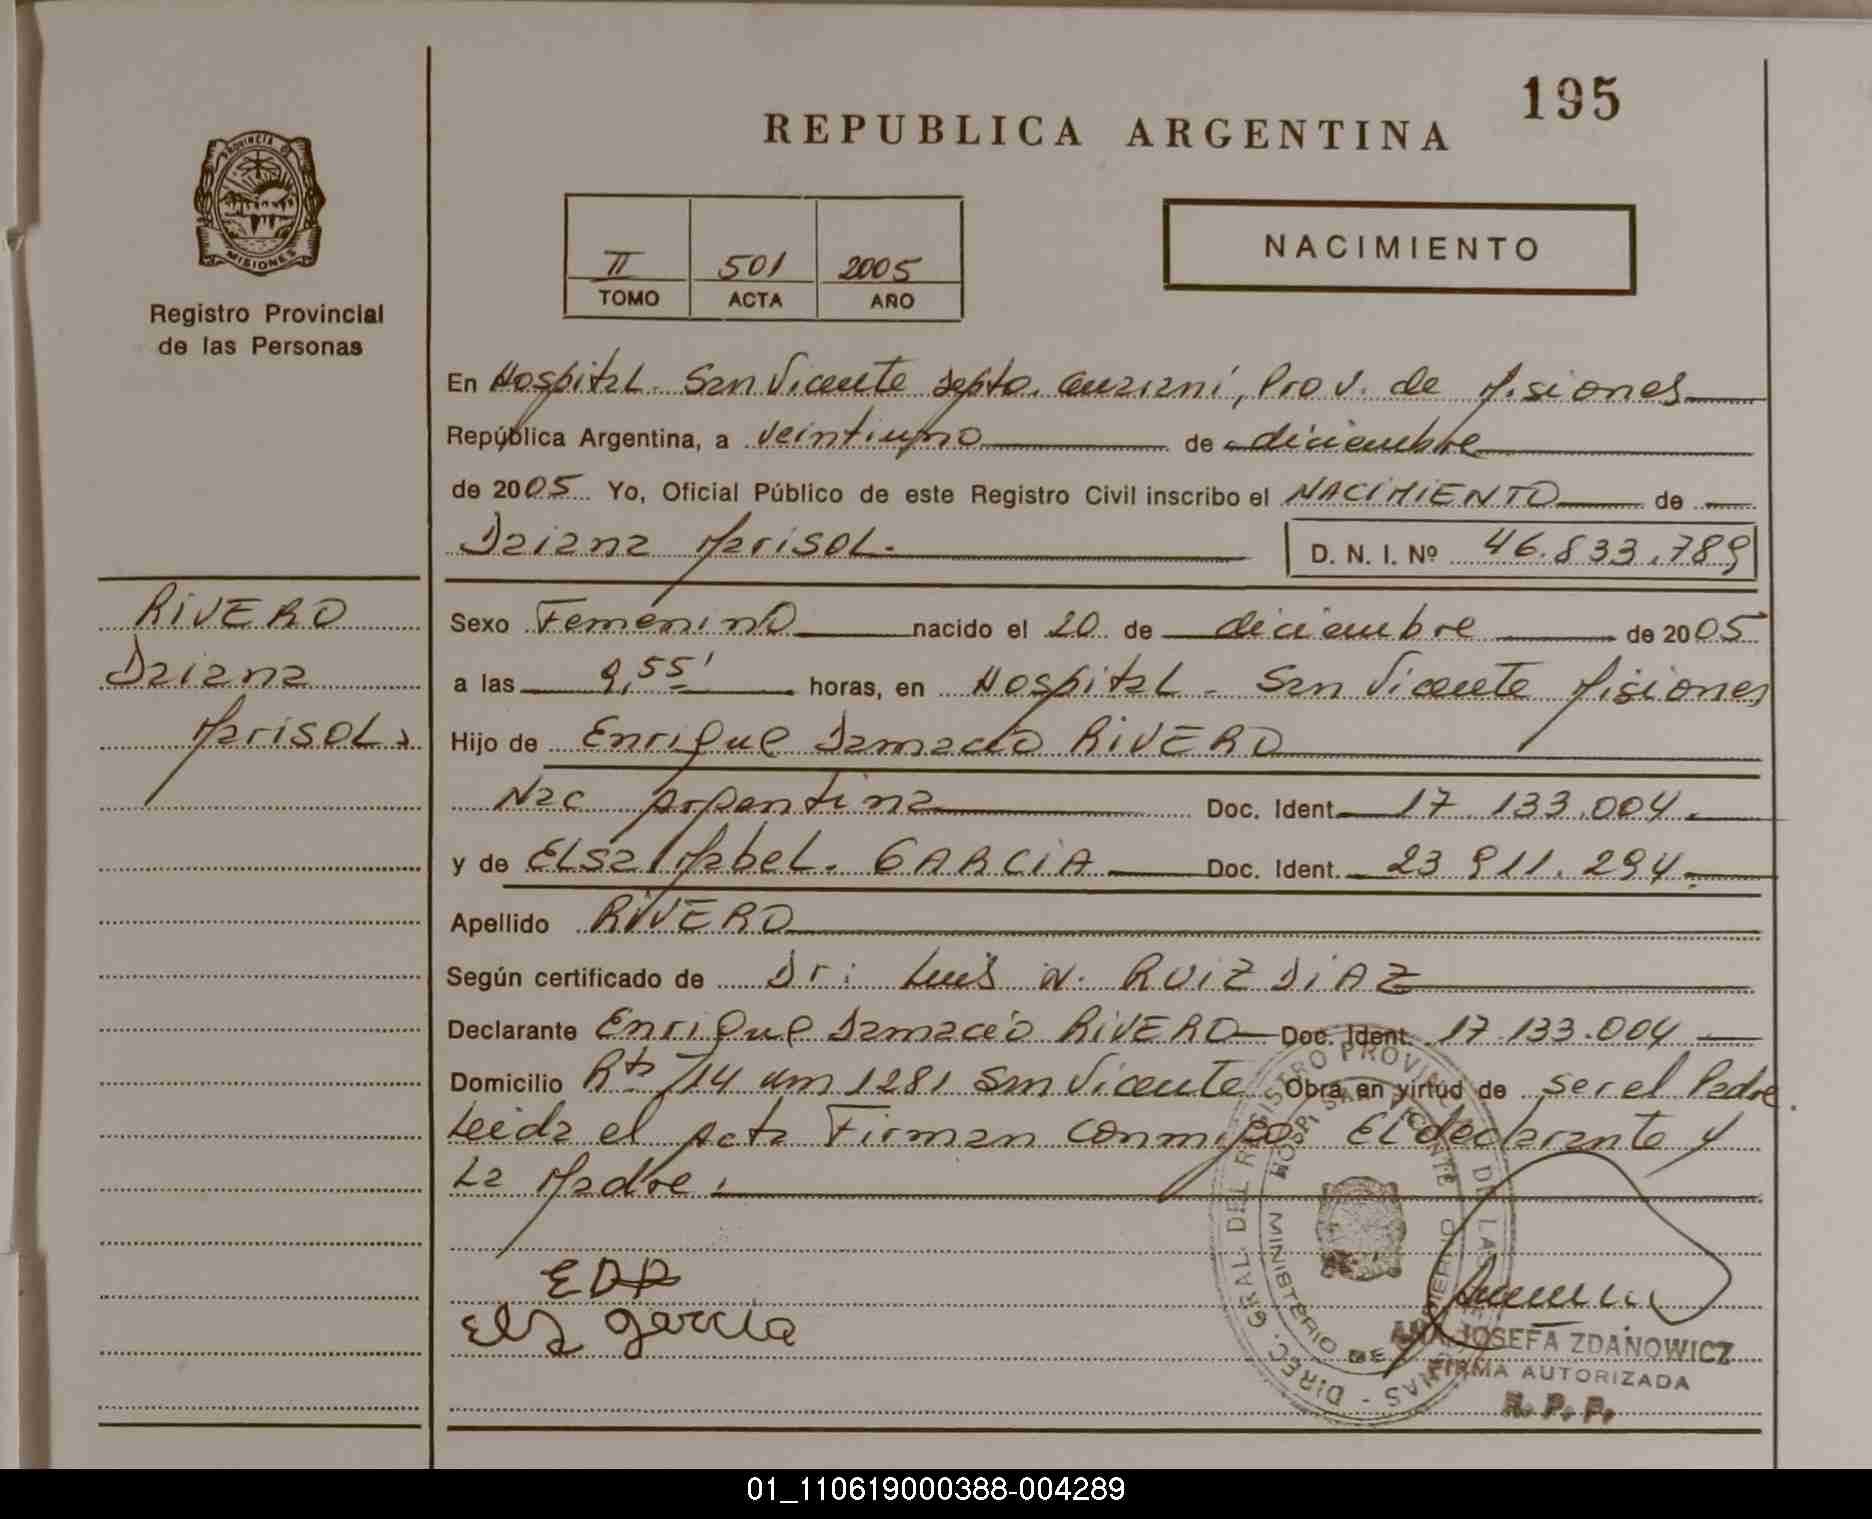 195
REPUBLICA ARGENTINA
PROVINCIA DE
MISIONES
Registro Provincial
de las Personas
II 501 2005
TOMO ACTA AÑO
NACIMIENTO
En Hospital San Vicente Depto. Guaraní, Prov. de Misiones
República Argentina, a veintiuno de diciembre
de 2005 Yo, Oficial Público de este Registro Civil inscribo el NACIMIENTO de
Daiana Marisol.
D. N. I. Nº 46.833.789
RIVERO
Daiana
Marisol
Sexo Femenino nacido el 20 de diciembre de 2005
a las 9,55' horas, en Hospital San Vicente Misiones
Hijo de Enrique Damacio RIVERO
Nac Argentina Doc. Ident. 17.133.004
y de ELSA Mabel GARCIA Doc. Ident. 23.911.294
Apellido RIVERO
Según certificado de Dr. Luis N. RUIZ DIAZ
Declarante Enrique Damacio RIVERO Doc. Ident. 17.133.004
Domicilio Rta 14 km 1281 San Vicente Obra en virtud de ser el Padre.
Leida el acta Firman conmigo El declarante y
La Madre.
EDR
Elsa garcia
DIREC. GRAL. DEL REGISTRO PROVINCIAL DE LAS PERSONAS
HOSP. SAN VICENTE
MINISTERIO DE GOBIERNO
ANA JOSEFA ZDANOWICZ
FIRMA AUTORIZADA
R. P. P.
01_110619000388-004289